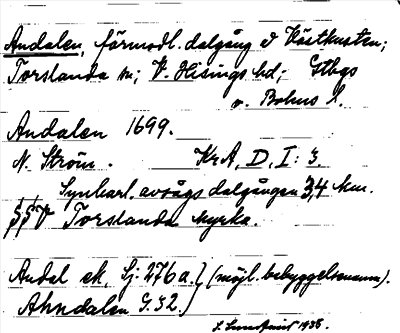 Andalen, förmodl. dalgång å Västkusten;
Torslanda sn; V. Hisings hd,- Gtbgs
o. Bohus l.
Andalen 1699.
N. Ström. Kr.A, D, I: 3.
Synbarl. avsågs dalgången 3,4 km.
Torslanda kyrka.
Andal ek. Sj: 276 a. } (möjl. bebyggelsenamn).
Ahndalen G. 52. }
1935.